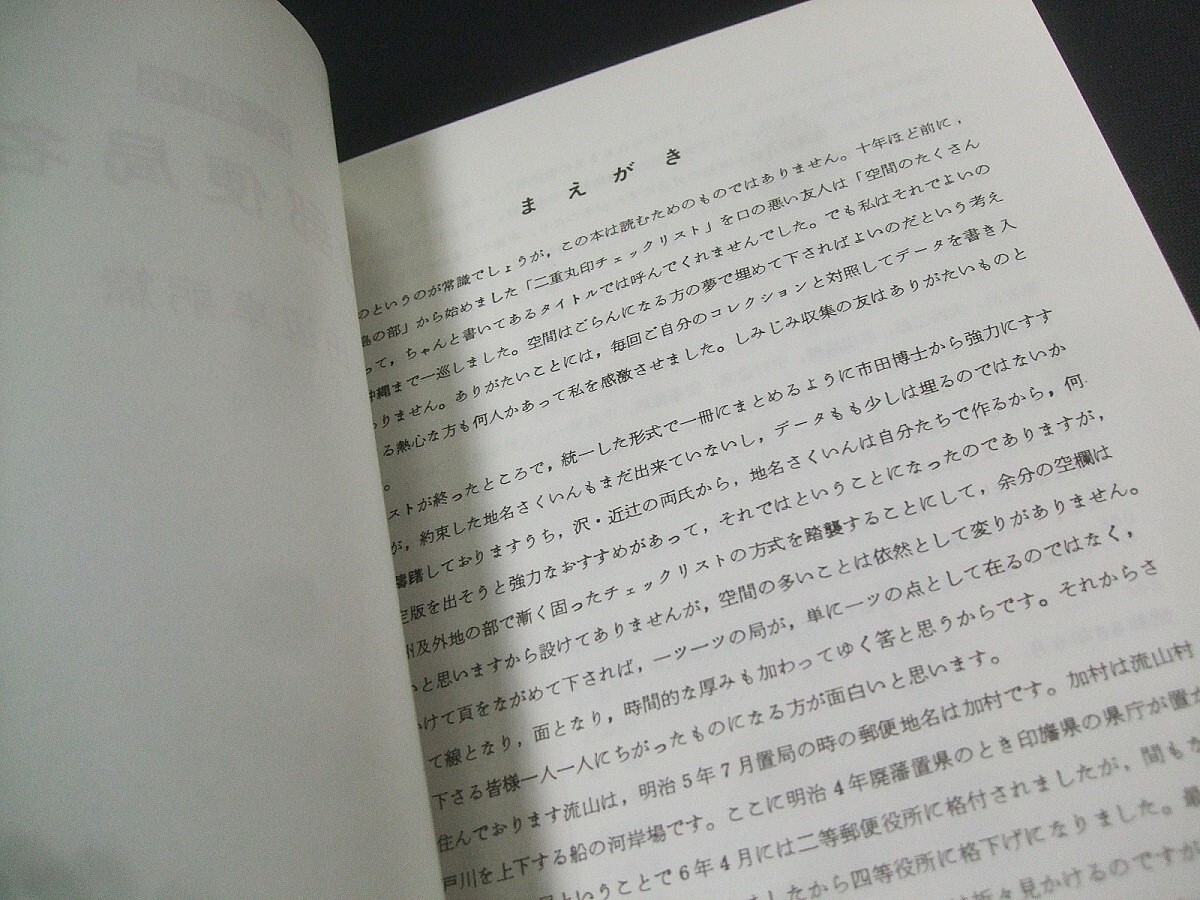 まえがき
のというのが常識でしょうが，この本は読むためのものではありません。十年ほど前に，
の部」から始めました「二重丸印チェックリスト」を口の悪い友人は「空間のたくさん
って，ちゃんと書いてあるタイトルでは呼んでくれませんでした。でも私はそれでよいの
沖縄まで一巡しました。空間はごらんになる方の夢で埋めて下さればよいのだという考え
りません。ありがたいことには，毎回ご自分のコレクションと対照してデータを書き入
る熱心な方も何人かあって私を感激させました。しみじみ収集の友はありがたいものと
。
ストが終ったところで，統一した形式で一冊にまとめるように市田博士から強力にすす
が，約束した地名さくいんもまだ出来ていないし，データもも少しは埋るのではないか
躊躇しておりますうち，沢・近辻の両氏から，地名さくいんは自分たちで作るから，何
定版を出そうと強力なおすすめがあって，それではということになったのでありますが，
州及外地の部で漸く固ったチェックリストの方式を踏襲することにして，余分の空欄は
いと思いますから設けてありませんが，空間の多いことは依然として変りがありません。
かけて頁をながめて下されば，一ツ一ツの局が，単に一ツの点として在るのではなく，
て線となり，面となり，時間的な厚みも加わってゆく筈と思うからです。それからさ
下さる皆様一人一人にちがったものになる方が面白いと思います。
住んでおります流山は，明治5年7月置局の時の郵便地名は加村です。加村は流山村
戸川を上下する船の河岸場です。ここに明治4年廃藩置県のとき印旛県の県庁が置か
ということで6年4月には二等郵便役所に格付されましたが，間もな
ましたから四等役所に格下げになりました。最
は折々見かけるのですが